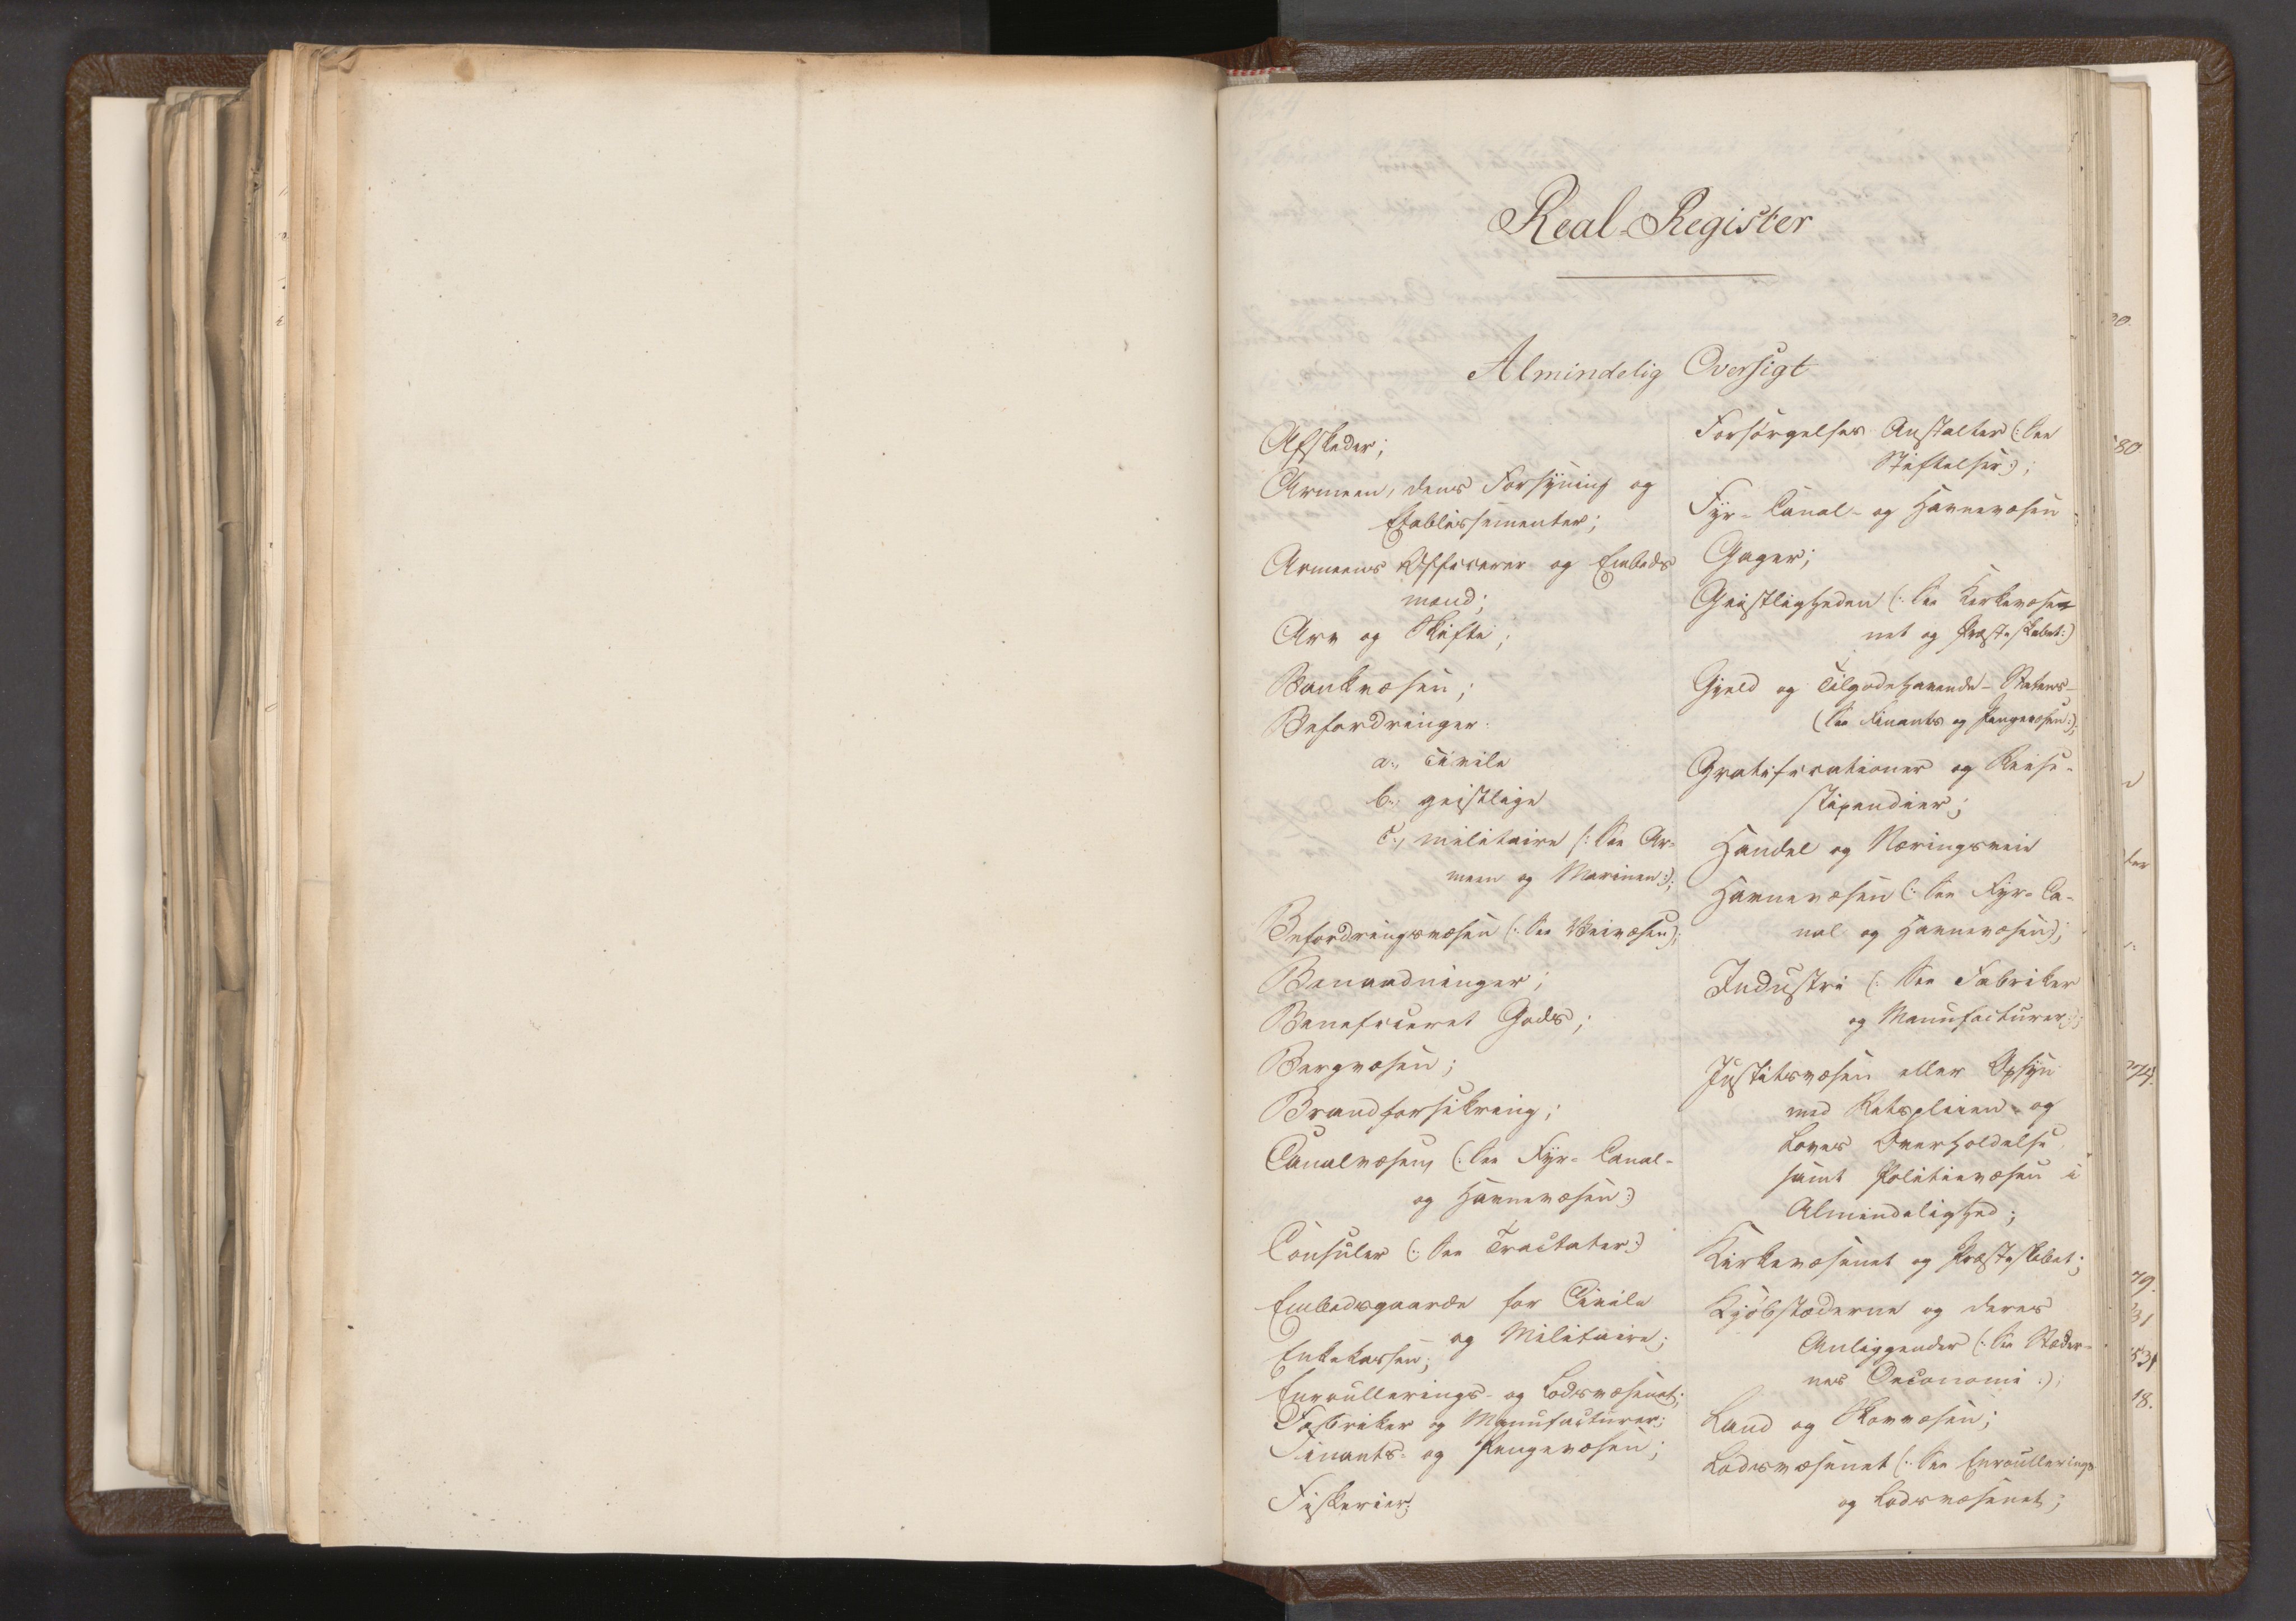 Real-Register
Almindelig Oversigt
Afskeder;
Armeen, dens Forsyning og
Etablissementer;
Armeens Officerer og Embeds
mænd;
Arv og Skifte;
Bankvæsen;
Befordringer:
a., civile
b., geistlige
c., militaire (: See Ar-
meen og Marinen:);
Befordringsvæsen (: See Veivæsen);
Benaadninger;
Beneficeret Gods;
Bergvæsen;
Brandforsikring;
Canalvæsen, (: See Fyr- Canal-
og Havnevæsen:)
Consuler (: See Tractater:)
Embedsgaarde for Civile
og Militaire;
Enkekassen;
Enroullerings- og Lodsvæsenet;
Fabriker og Manufacturer;
Finants- og Pengevæsen;
Fiskerier;
Forsörgelses Anstalter (: See
Stiftelser:);
Fyr- Canal- og Havnevæsen
Gager;
Geistligheden (: See Kirkevæse-
net og Præsteskabet:)
Gjeld og Tilgodehavende- Statens-
(See Finants og Pengevæsen:);
Gratificationer og Reise-
stipendier;
Handel og Næringsveie
Havnevæsen (: See Fyr- Ca-
nal og Havnevæsen);
Industri (: See Fabriker
og Manufacturer:);
Justitsvæsen eller Opsyn
med Retspleien og
Loves Overholdelse
samt Politievæsen i
Almindelighed;
Kirkevæsenet og Præsteskabet;
Kjöbstæderne og deres
Anliggender (: See Stæder-
nes Oeconomi:);
Land og Skovvæsen;
Lodsvæsenet (: See Enroullerings
og Lodsvæsenet;